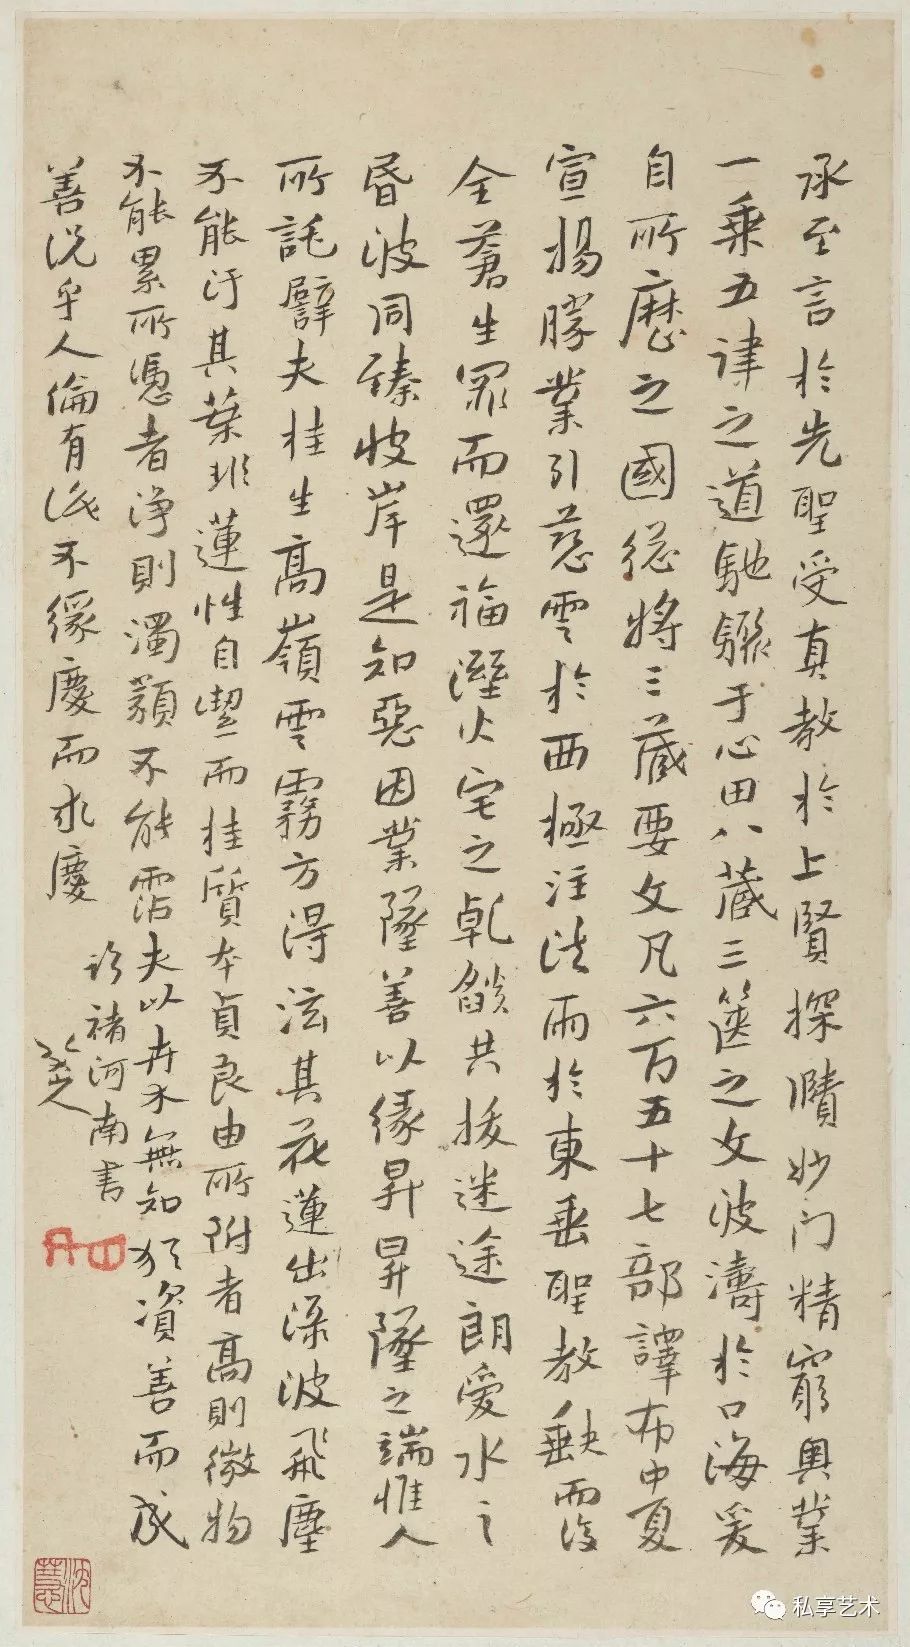 承至言於先聖受真教於上賢探賾妙门精窮奥業
一乘五律之道馳驟于心田八藏三篋之文波濤於口海爰
自所歷之國總將三藏要文凡六百五十七部譯布中夏
宣揚勝業引慈雲於西極注法雨於東垂聖教缺而復
全蒼生罪而還福溼火宅之乾燄共拔迷途朗愛水之
昏波同臻彼岸是知惡因業墜善以緣昇昇墜之端惟人
所託譬夫桂生高嶺雲霧方得泫其花蓮出淥波飛塵
不能汙其葉非蓮性自潔而桂質本貞良由所附者高則微物
不能累所憑者淨則濁類不能霑夫以卉木無知猶資善而成
善況乎人倫有識不緣慶而求慶
臨褚河南書
八大山人
沈慧
私享艺术